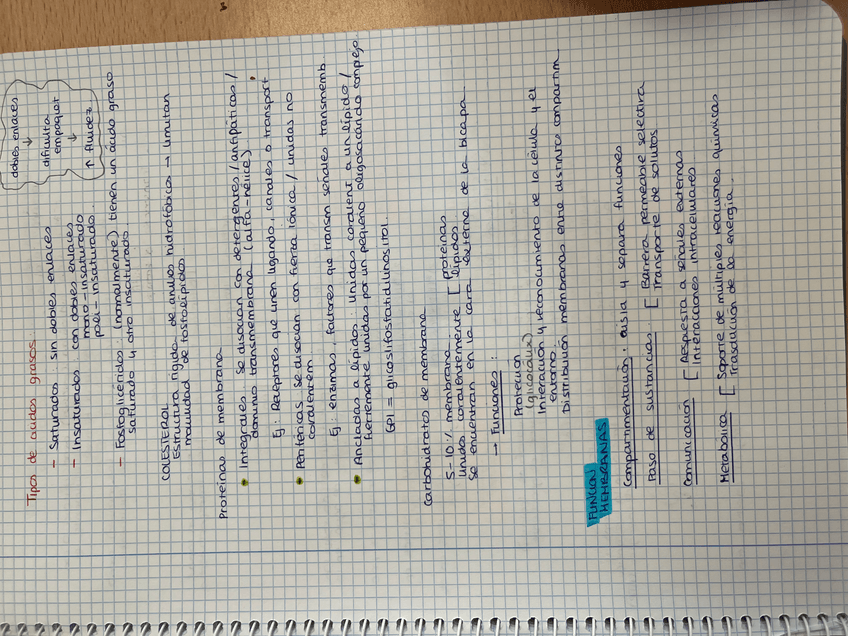 Tipos de ácidos grasos
- Saturados: sin dobles enlaces
- Insaturados: con dobles enlaces
mono-insaturado
poli-insaturado
dobles enlaces
↓
dificulta
empaquet
↓
↑ fluidez
- Fosfoglicéridos: (normalmente) tienen un ácido graso
saturado y otro insaturado
COLESTEROL
Estructura rígida de anillos hidrofóbicos → limitan
movilidad de fosfolípidos
Proteínas de membrana
• Integrales: se disocian con detergentes / antipáticas /
dominio transmembrana (alfa-hélice)
Ej: Receptores que unen ligando, canales o transport
• Periféricas: se disocian con fuerza iónica / unidas no
covalentem
Ej: enzimas, factores que transm señales transmemb
• Ancladas a lípidos: unidas covalent a un lípido /
fuertemente unidas por un pequeño oligosacárido complejo.
GPI = glicosilfosfatidilinositol
Carbohidratos de membrana
5-10% membrana
Unidos covalentemente [ proteínas
lípidos
Se encuentran en la cara externa de la bicapa
→ Funciones:
Protección
(glicocálix)
Interacción y reconocimiento de la célula y el
entorno
Distribución membranas entre distintos compartim
FUNCIÓN
MEMBRANAS
Compartimentación: aísla y separa funciones
Paso de sustancias [ Barrera permeable selectiva
Transporte de solutos
Comunicación [ Respuesta a señales externas
Interacciones intracelulares
Metabólica [ Soporte de múltiples reacciones químicas
Trasducción de la energía